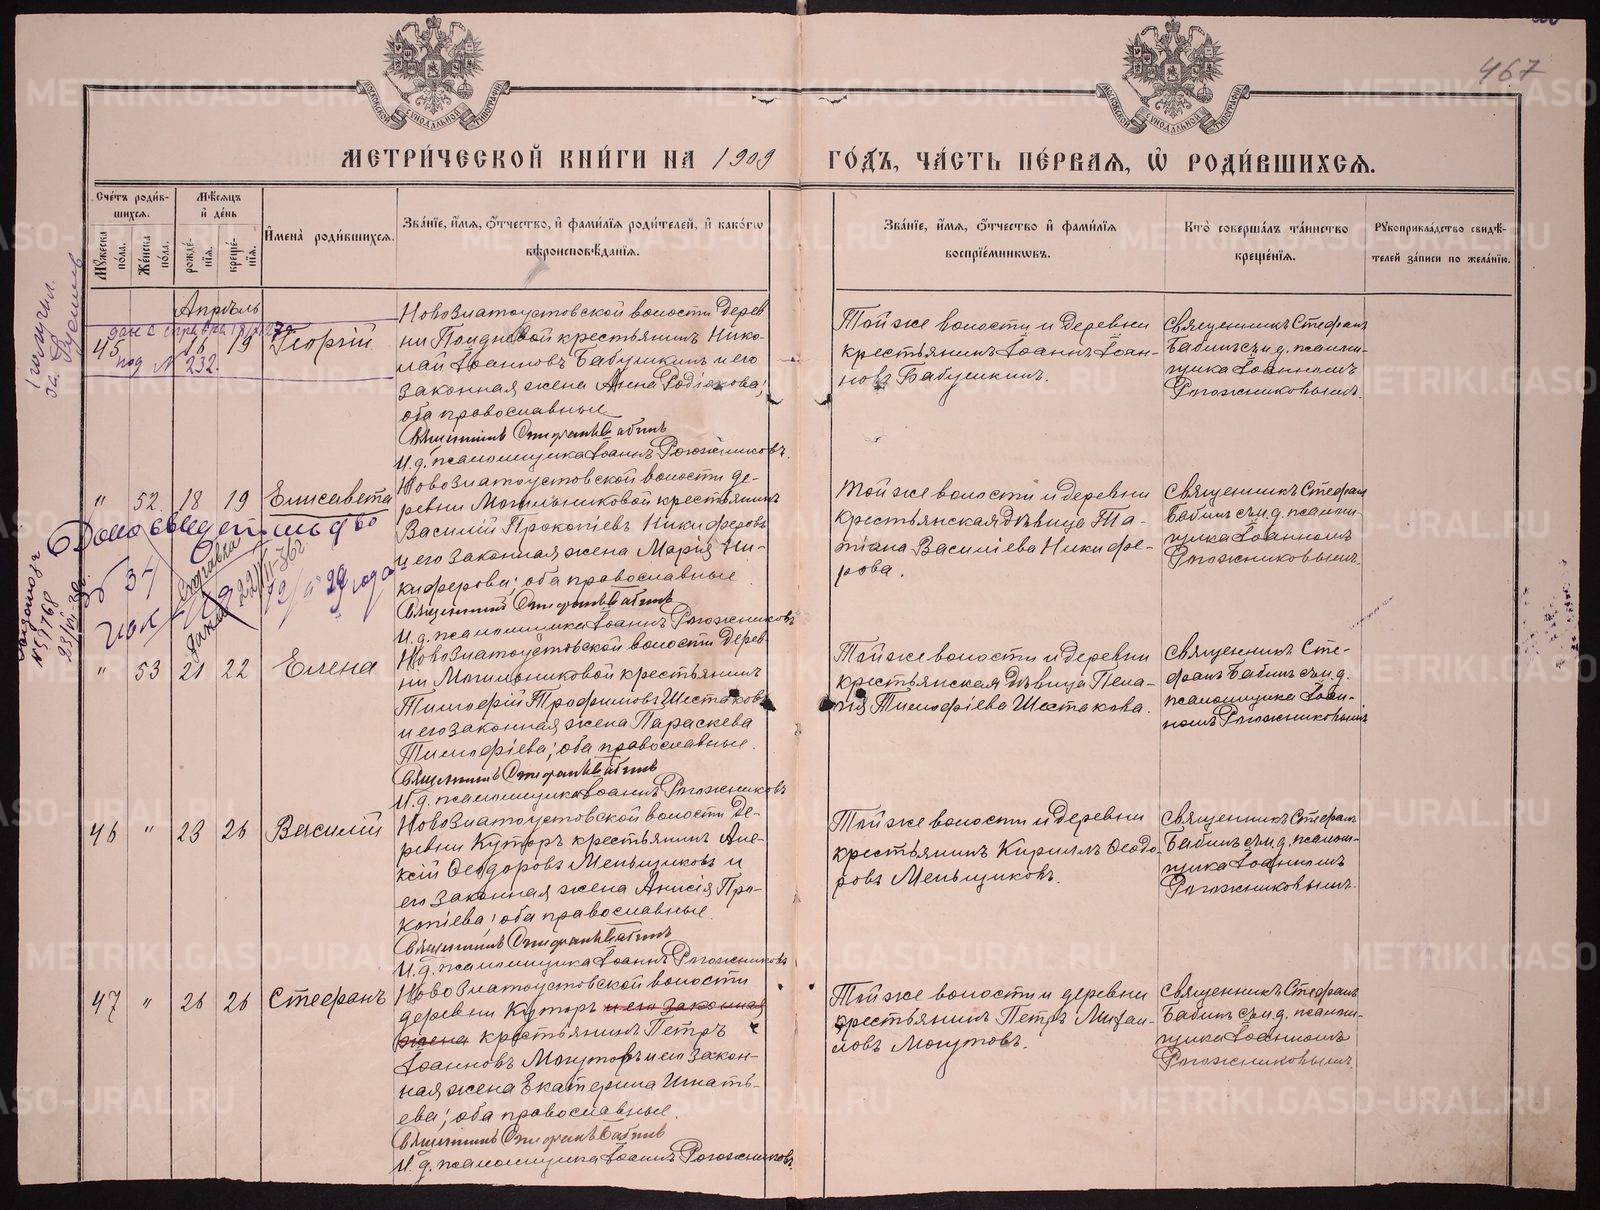 467
МЕТРИ́ЧЕСКОЙ КНИ́ГИ НА 1909 ГО́ДЪ, ЧА́СТЬ ПЕ́РВАЯ, Ѡ҆ РОДИ́ВШИХСЯ.
Сче́тъ роди́в-
шихся.
Му́жеска по́ла.
Же́нска по́ла.
Мѣ́сяцъ
и҆ де́нь
рожде́-
нїя.
креще́-
нїя.
И҆мена̀ роди́вшихся.
Зва́нїе, и҆́мя, ѻ҆́тчество, и҆ фами́лїя роди́телей, и҆ како́гѡ
вѣроисповѣ́данїя.
Зва́нїе, и҆́мя, ѻ҆́тчество и҆ фами́лїя
воспрїе́мниковъ.
Кто̀ соверша́лъ та́инство
креще́нїя.
Рукоприкла́дство свидѣ́-
телей за́писи по жела́нїю.
Апрѣль
45 16 19 Георгій
под № 232.
Новозлатоустовской волости Дерев
ни Поздновой крестьянинъ Нико-
лай Іоанновъ Бабушкинъ и его
законная жена Анна Родіонова;
оба православные
Священникъ Стефанъ Бабинъ
И. д. псаломщика Іоаннъ Рогожниковъ.
Той же волости и деревни
крестьянинъ Іоаннъ Іоан-
новъ Бабушкинъ.
Священникъ Стефанъ
Бабинъ съ и. д. псалом-
щика Іоанномъ
Рогожниковымъ.
" 52 18 19 Елисавета
Новозлатоустовской волости де-
ревни Могильниковой крестьянинъ
Василій Прокопіевъ Никифоровъ
и его законная жена Марія Ни-
киферова; оба православные
Священникъ Стефанъ Бабинъ
И. д. псаломщика Іоаннъ Рогожниковъ
Той же волости и деревни
крестьянская дѣвица Та-
тіана Василіева Никифе-
рова.
Священникъ Стефан
Бабинъ съ и. д. псалом-
щика Іоанномъ
Рогожниковымъ.
" 53 21 22 Елена
Новозлатоустовской волости Дерев
ни Могильниковой крестьянинъ
Тимофій Трофимовъ Шестаковъ
и его законная жена Параскева
Тимофіева; оба православные.
Священникъ Стефанъ Бабинъ
И. д. псаломщика Іоаннъ Рогожниковъ
Той же волости и деревни
крестьянская дѣвица Пела-
гія Тимофіева Шестакова.
Священникъ Сте-
фанъ Бабинъ съ и. д.
псаломщика Іоан-
номъ Рогожниковымъ
46 " 23 26 Василій
Новозлатоустовской волости Де-
ревни Куторъ крестьянинъ Але-
ксій Ѳеодоровъ Меньщиковъ и
его законная жена Анисія Про-
копіева; оба православные.
Священникъ Стефанъ Бабинъ
И. д. псаломщика Іоаннъ Рогожниковъ
Той же волости и деревни
крестьянинъ Кириллъ Ѳеодо-
ровъ Меньщиковъ.
Священникъ Стефанъ
Бабинъ съ и. д. псалом-
щика Іоанномъ
Рогожниковымъ.
47 " 26 26 Стефанъ
Новозлатоустовской волости
деревни Куторъ и его законная
жена крестьянинъ Петръ
Іоанновъ Могутовъ и его закон-
ная жена Екатерина Игнать-
ева; оба православные.
Священникъ Стефанъ Бабинъ
И. д. псаломщика Іоаннъ Рогожниковъ.
Той же волости и деревни
крестьянинъ Петръ Михаи-
ловъ Могутовъ.
Священникъ Стефанъ
Бабинъ съ и. д. псалом-
щика Іоанномъ
Рогожниковымъ.
METRIKI.GASO-URAL.RU